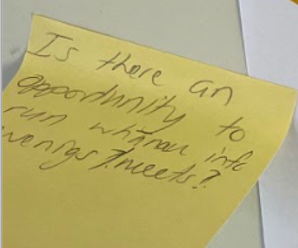 Is there an
opportunity to
run whānau info
evenings/meets?